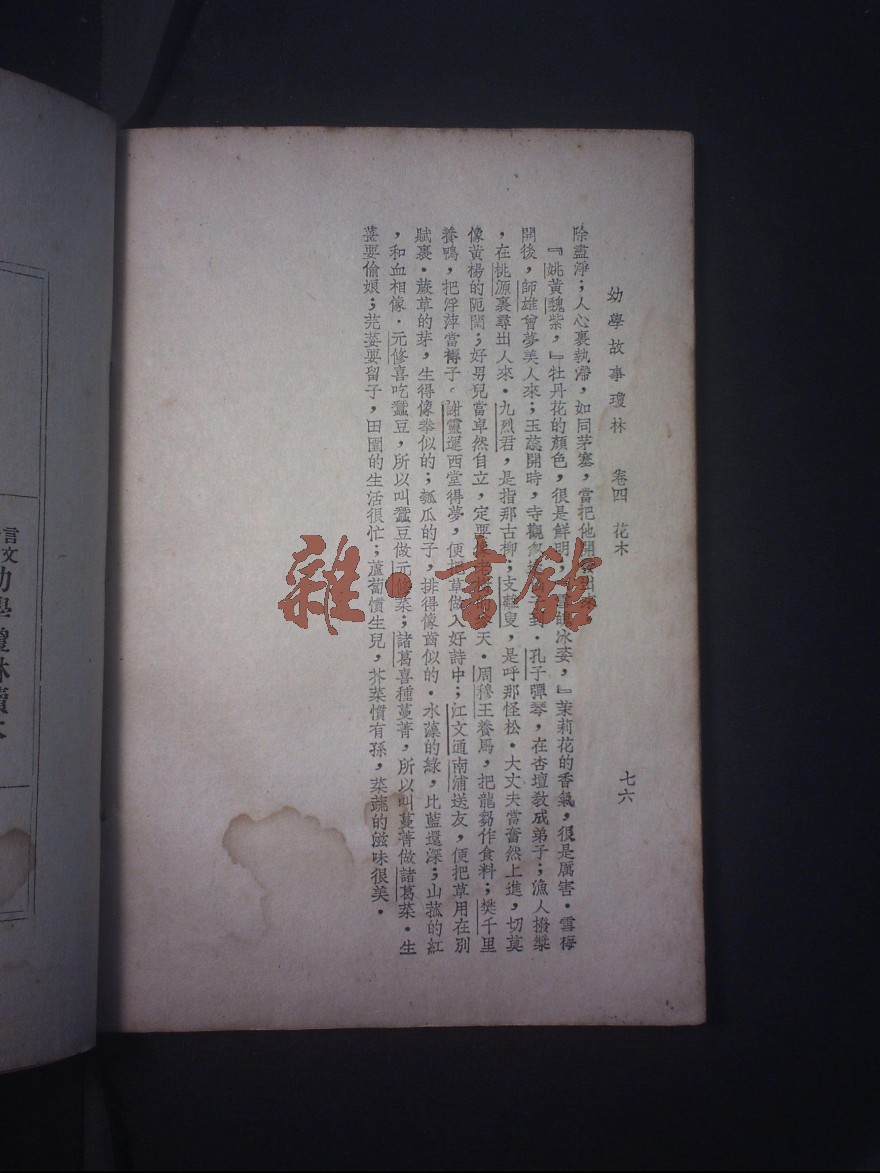 幼學故事瓊林　卷四　花木　七六
除盡淨；人心裏執滯，如同茅塞，當把他開
『姚黃魏紫，』牡丹花的顏色，很是鮮明；冰姿，』茉莉花的香氣，很是厲害．雪梅
開後，師雄曾夢美人來；玉蕊開時，寺觀．孔子彈琴，在杏壇敎成弟子；漁人撥槳
，在桃源裏尋出人來．九烈君，是指那古柳；支離叟，是呼那怪松．大丈夫當奮然上進，切莫
像黃楊的阨閏；好男兒當卓然自立，定要天．周穆王養馬，把龍芻作食料；樊千里
養鴨，把浮萍當褥子．謝靈運西堂得夢，便把草做入好詩中；江文通南浦送友，便把草用在別
賦裏．蕨草的芽，生得像拳似的；瓠瓜的子，排得像齒似的．水藻的綠，比藍還深；山菰的紅
，和血相像．元修喜吃蠶豆，所以叫蠶豆做元修菜；諸葛喜種蔓菁，所以叫蔓菁做諸葛菜．生
薑要偷娘；芫荽要留子，田園的生活很忙；蘆萄慣生兒，芥菜慣有孫，菜蔬的滋味很美．
言文
幼學瓊林讀本
雜·書館